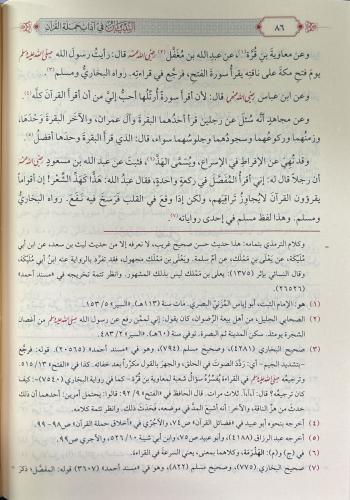 ٨٦ التبيان في آداب حملة القرآن
وعن معاوية بنِ قُرَّة(١)، عن عبدالله بن مُغفَّل(٢) رضي الله عنه قال: رأيتُ رسول الله ﷺ
يومَ فتحِ مكة على ناقتِه يقرأُ سورة الفتحِ، فرجَّع في قراءتِه. رواه البخاريُّ ومسلم(٣).
وعن ابن عباس رضي الله عنهما قال: لأن أقرأ سورةً أُرتِّلُها أحبُّ إليَّ من أن أقرأَ القرآن كلَّه(٤).
وعن مجاهدٍ أنَّه سُئل عن رجلين قرأ أحدُهما البقرةَ وآلَ عمران، والآخر البقرةَ وحدَها،
وزمنُهما وركوعُهما وسجودُهما وجلوسُهما سواء، قال: الذي قرأ البقرةَ وحدَها أفضلُ(٥).
وقد نُهِيَ عن الإفراطِ في الإسراع، ويُسَمَّى الهَذُّ(٦)؛ فثبتَ عن عبد الله بن مسعودٍ رضي الله عنه
أن رجلًا قال له: إني أقرأُ المُفَصَّل في ركعةٍ واحدةٍ، فقال عبدُ الله: هَذًّا كَهَذِّ الشِّعْر! إن أقوامًا
يقرؤون القرآنَ لا يُجاوِزُ تراقِيَهم، ولكن إذا وقعَ في القلب فَرسَخَ فيه نَفَعَ. رواه البخاريُّ
ومسلم. وهذا لفظ مسلم في إحدى رواياته(٧).
= وكلام الترمذي بتمامه: هذا حديث حسن صحيح غريب، لا نعرفه إلا من حديث ليث بن سعد، عن ابن أبي
مُلَيكة، عن يَعْلى بن مَمْلَك، عن أم سلمة. ويَعْلى بن مَمْلَك مجهول، فقد تفرَّد بالرواية عنه ابنُ أبي مُليكة،
وقال النسائي بإثر (١٣٧٥): يعلى بن مَمْلك ليس بذلك المشهور. وانظر تتمة تخريجه في «مسند أحمد»
(٢٦٥٢٦).
(١) هو: الإمام الثبت، أبو إياس المُزَنيُّ البصري. مات سنة (١١٣هـ). «السير» ١٥٣/٥.
(٢) الصحابي الجليل، من أهل بيعة الرِّضوان، كان يقول: إني لممَّن رفع عن رسول الله ﷺ من أغصان
الشجرة يومئذ. سكن المدينة ثم البصرة. توفي سنة (٦٠هـ). «السير» ٤٨٣/٢.
(٣) صحيح البخاري (٤٢٨١)، وصحيح مسلم (٧٩٤)، وهو في «مسند أحمد» (٢٠٥٦٥). قوله: فرجَّع
-بتشديد الجيم- أي: ردَّدَ الصوتَ في الحلقِ، والجهرَ بالقول مكررًا بعد خفائه. كذا في «الفتح» ٥١٥/١٣.
وترجيعُه ﷺ في القراءة يُفسِّرُه سؤالُ شعبة لمعاوية بن قُرَّة - كما في رواية البخاري (٧٥٤٠)-: كيف
كان ترجيعُه؟ قال: آآآ. ثلاث مرات. قال الحافظ في «الفتح» ٩٢/٩: قالوا: يحتمل أمرين: أحدهما أن ذلك
حدث من هزِّ الناقة، والآخر: أنه أشبع المدَّ في موضعه، فحَدَث ذلك. وانظر تتمة كلامه.
(٤) أخرجه بنحوه أبو عبيد في «فضائل القرآن» ص٧٤، والآجُرِّي في «أخلاق حملة القرآن» ص٩٨-٩٩.
(٥) أخرجه عبد الرزاق (٤١٨٨)، وأبو عبيد ص٧٥، وابن أبي شيبة ٥٢٦/١٠، والآجري ص٩٩.
(٦) في (ج) و(م): الهَذْرَمة، وكلاهما بمعنى، يعني السرعة في القراءة.
(٧) صحيح البخاري (٧٧٥)، وصحيح مسلم (٨٢٢)، وهو في «مسند أحمد» (٣٦٠٧) قوله: المفصَّل؛ ذكرَ =